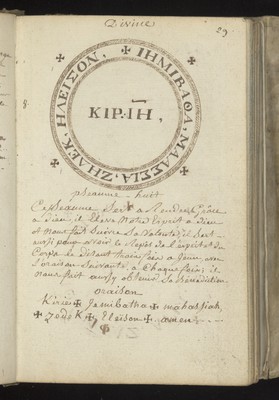 Divine
29
8.
✠ IHMIBAΘA, MAASSIA, ZHΔEK, HΛEISON,
KIP.IH,
pseaume huit
Ce pseaume sert a Rendre grace
a dieu, il Eleve Notre Esprit a dieu
et nous fait suivre sa volonté, il sert
aussi pour avoir le Repos de l'esprit et du
Corps le disant trois fois a Jeun, avec
l'oraison suivante, a Chaque fois, il
nous fait aussy obtenir sa benediction.
oraison
Kiriés ✠ Jemibatha ✠ mahassiah
✠ Zodek ✠ Eleison ✠ amen
13